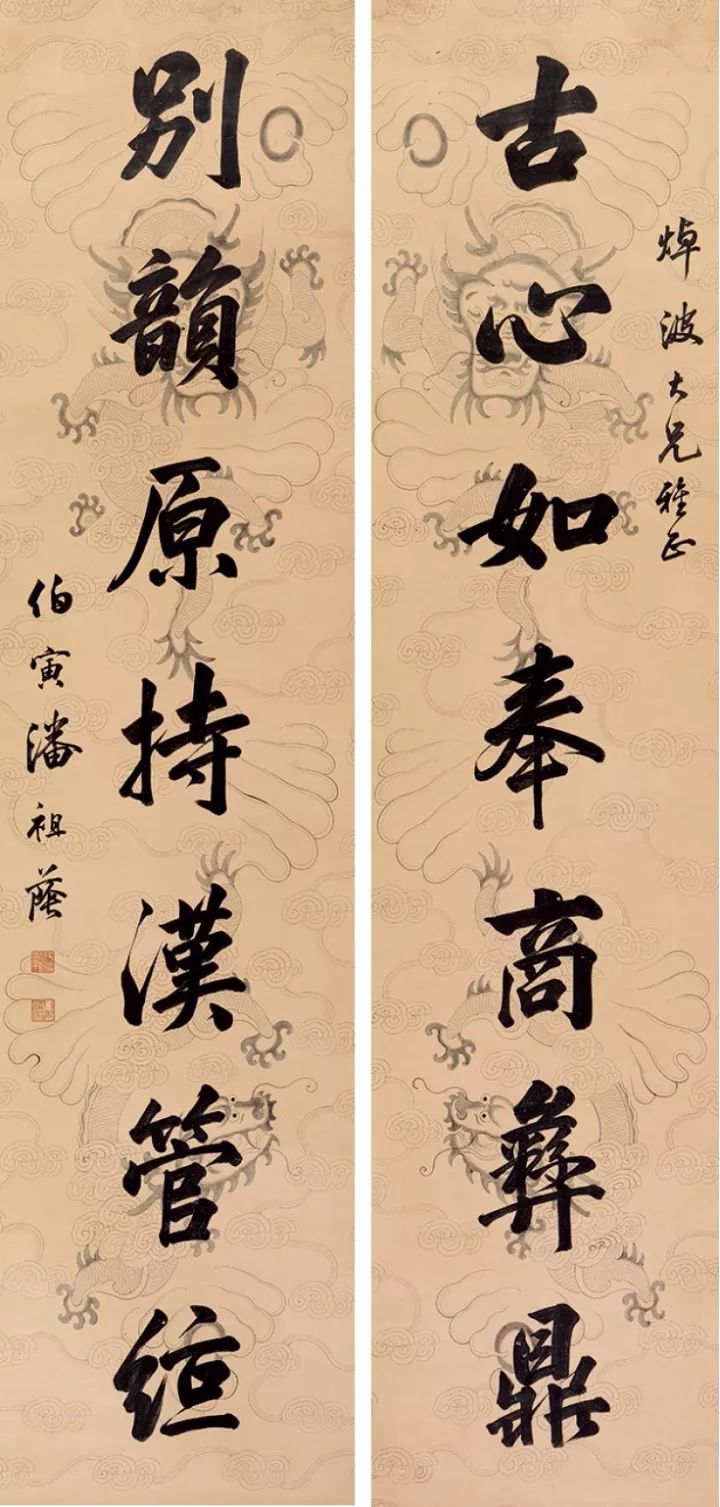 焯波大兄雅正
古心如奉商彝鼎
别韻原持漢管絃
伯寅潘祖蔭